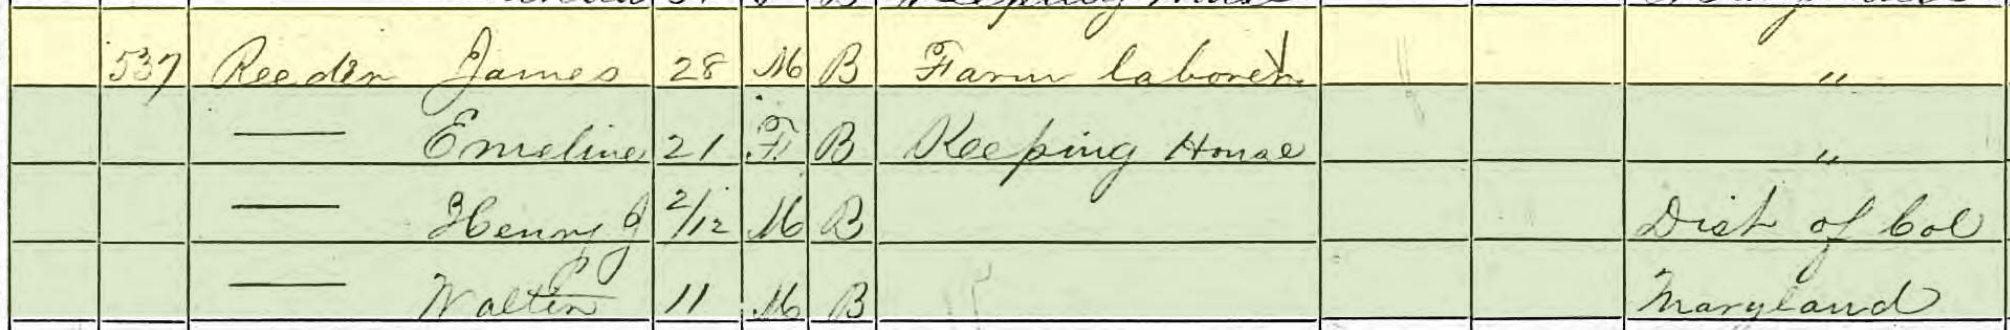 Keeping House
537 Reeder James 28 M B Farm laborer "
— Emeline 21 F B Keeping House "
— Henry J 2/12 M B Dist of Col
— Walter 11 M B Maryland